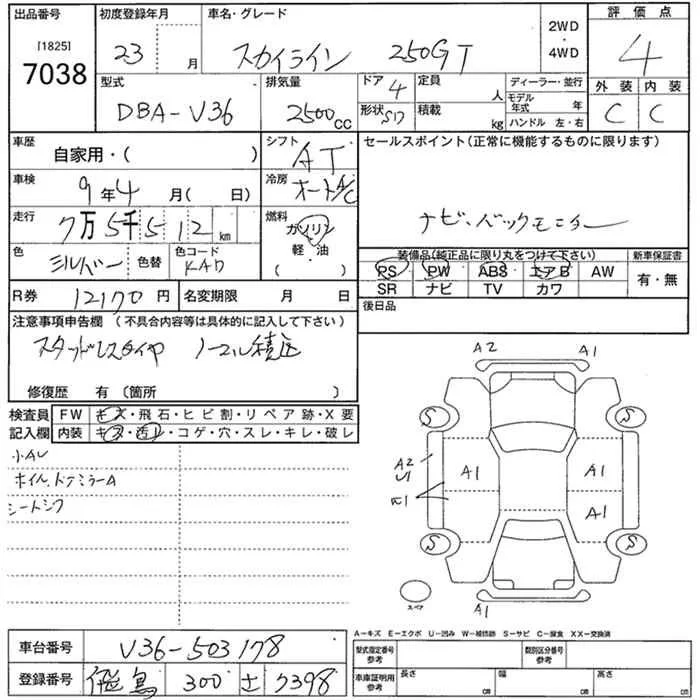 出品番号 初度登録年月 車名・グレード 2WD 評価点
[1825] 23 月 スカイライン 250GT ・ 4
7038 4WD
型式 排気量 ドア 4 定員 人 ディーラー・並行 外装 内装
DBA-V36 2500cc 形状 SD 積載 kg モデル年式 年 C C
ハンドル 左・右
車歴 自家用・( ) シフト AT セールスポイント(正常に機能するものに限ります)
車検 9年4月(日) 冷房 オートA/C
走行 7万5千512km 燃料 ガソリン ナビ、バックモニター
軽・油
色 シルバー 色替 色コード KAD ( ) 装備品(純正品に限り丸をつけて下さい) 新車保証書
PS PW ABS エアB AW 有・無
R券 12170円 名変期限 月 日 SR ナビ TV カワ
注意事項申告欄 (不具合内容等は具体的に記入して下さい) 後日品
スタッドレスタイヤ ノーマル積込
修復歴 有 〔箇所 〕
検査員 FW キズ・飛石・ヒビ割・リペア跡・X要
記入欄 内装 キズ・汚レ・コゲ・穴・スレ・キレ・破レ
小AU
ホイル、ドアミラーA
シートシワ
A2 A1
S S
A2 A1 A1
U1
A1
S S
スペア A1
A-キズ E-エクボ U-凹み W-補修跡 S-サビ C-腐食 XX-交換済
車台番号 V36-503178 型式指定番号 参考 類別区分番号 参考
登録番号 300 7398 車庫証明用 参考 長さ cm 幅 cm 高さ cm